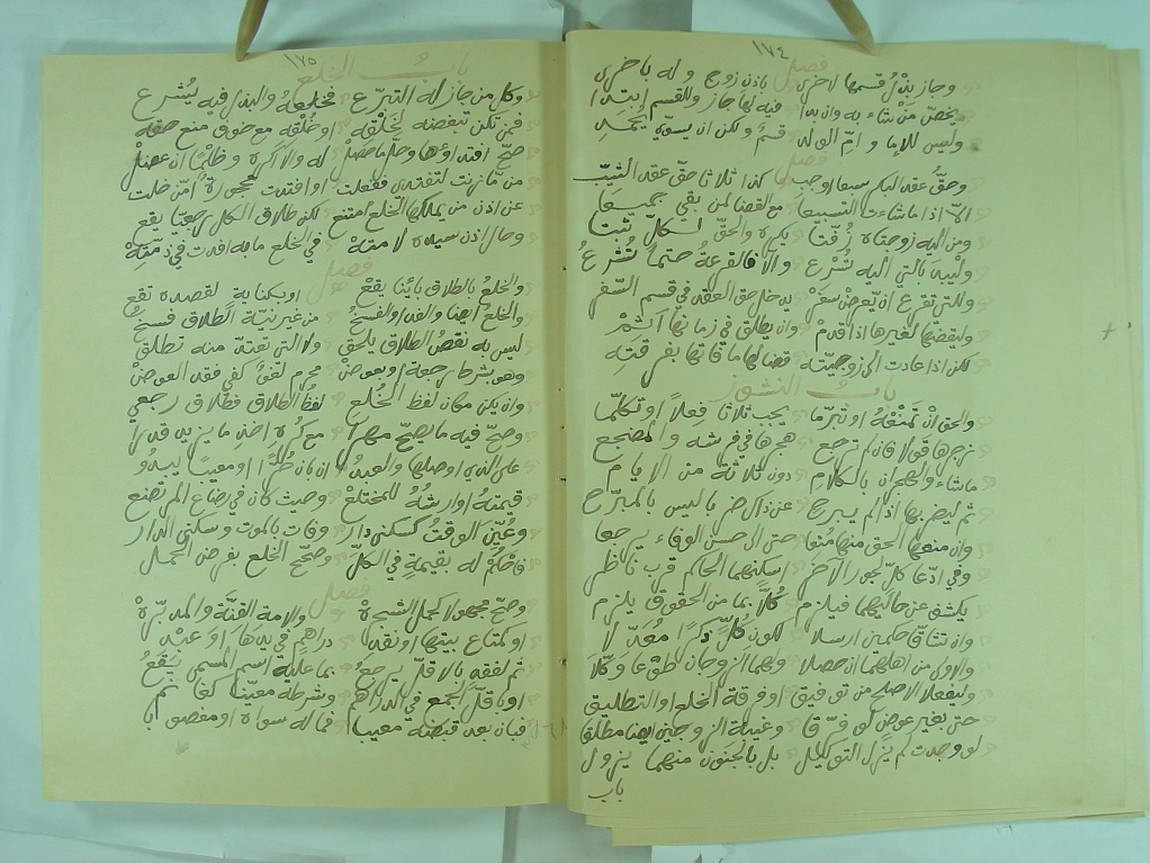 ١٧٤
فصل
وجاز بذل قسمها لاخرى باذن زوج وله باخرى
يخص من شاء به وان بدا فيه لها جاز وللقسم ابتدا
وليس للاما و امّ الولد قسمٌ ولكن ان يسوّي يُحمدِ
فصل
وحقُّ عقد البكر سبعا اوجب كذا ثلاثا حقّ عقد الثيّب
الاّ اذا ما شاءت التسبيعا مع القضا لمن بقي جميعا
ومن اليه زوجتاه زُفّتا يكره والحقّ لكلّ ثبتا
وليبدَ بالتي اليه تُسرع والاّ فالقرعةُ حتماً تُشرعُ
وللتي تقرع ان يعرض سفرْ يدخل حق العقد في قسم السّفر
وليقضها لغيرها اذا قدمْ وان يطلق في زمانها أثمْ
لكن اذا عادت الى زوجيّته قضا لها ما فاتها بفرقتِه
بابُ النشوز
والحق انْ تمنعْهُ او تبرّما يجب ثلاثا فِعلاً او تكلّما
نزجرها قولا فان لم ترجع هجرها في فرشه والمضجع
ما شاء والهجران بالكلام دون ثلاثة من الايام
ثم ليضربها اذا لم يبرح عن ذاك ضربا ليس بالمبرّح
وان منعها الحق منها مُنعا حتى الى حسن الوفاء يرجعا
وفي ادّعا كلّ لجور الآخر اسكنهما الحاكم قرب ناظر
يكشف عن حاليهما فيلزم كُلاًّ بما من الحقوق يلزم
وان تشاقّا حكمين ارسلا لكون كُلٍّ ذكرا مُعدّلا
والاولى من اهلهما ان حصلا ولهما الزوجان طوْعا وكّلا
وليفعلا الاصلح من توفيق او فرقة الخلع او التطليق
حتى بغير عوض لو فرّقا وغيبة الزوجين ايضا مطلقا
لو وجدت لم يزل التوكيل بل بالجنون منهما يزول
باب
١٧٥
بابُ الخلع
وكل من جاز له التبرّع فخلعهُ والبذل فيه يُشرع
فمن تكن تبغضه لخَلْقه او خُلْقه مع خوف منع حقه
صحّ افتداؤها وحلّ ما حصلْ له والاّ كره وظلْمًا ان عضلْ
من ما زنت لتفتدي ففعلت او افتدت محجورةٌ امّن خلت
عن اذن من يملكها الخلع امتنع لكن طلاق الكل رجعيّا يقع
وحال اذن سيده لامتهْ في الخلع ما به افتدت في ذمّتِهْ
فصل
والخلعُ بالطلاق بائنا يقعْ او بكناية لقصده تقع
والخلعُ ايضا والفدا والفسخُ من غير نيّة الطلاق فسخُ
ليس به نقصُ الطلاق يلحق ولا التي تعتدّ منه تطلق
وهو بشرط رجعة او بعوضْ محرم لغوٌ كفي فقد العوضْ
وان يكن مكان لفظ الخُلع لفظُ الطلاق فطلاق رجعي
وصحّ فيه ما يصحّ مهرا مع كُرهِ اخذ ما يزيد قدرا
على الذي اوصلها والعبدُ ان بان حُرًّا او معيبًا يبدُو
قيمتهُ او ارشُهُ للمختلعْ وحيث كان في رضاع المرتضع
وعُيّن الوقتُ كسكنى دار وفات بالموت وسكنى الدار
فاحْكُمْ له بقيمةٍ في الكلّ وصحّح الخلع بفرض الحمل
فصل
وصحّ مجهولا كحمل الشجرهْ والامة القنَّة والمدبّرهْ
او كمتاع بيتها او نقد دراهم في يدها او عبْد
ثم لفقه بالاقلّ يرجعُ بما عليه اسم المسمى يَقَعُ
او باقلّ الجمع في الدراهم وشرطه معيّنا كفاتم
فبان بعد قبضه معيبا فما له سواه او مغصوبا